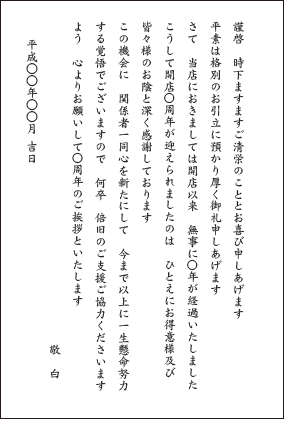 謹啓　時下ますますご清栄のこととお喜び申しあげます
平素は格別のお引立に預かり厚く御礼申しあげます
さて　当店におきましては開店以来　無事に〇年が経過いたしました
こうして開店〇周年が迎えられましたのは　ひとえにお得意様及び
皆々様のお陰と深く感謝しております
この機会に　関係者一同心を新たにして　今まで以上に一生懸命努力
する覚悟でございますので　何卒　倍旧のご支援ご協力くださいます
よう　心よりお願いして〇周年のご挨拶といたします
敬　白
平成〇〇年〇〇月　吉日